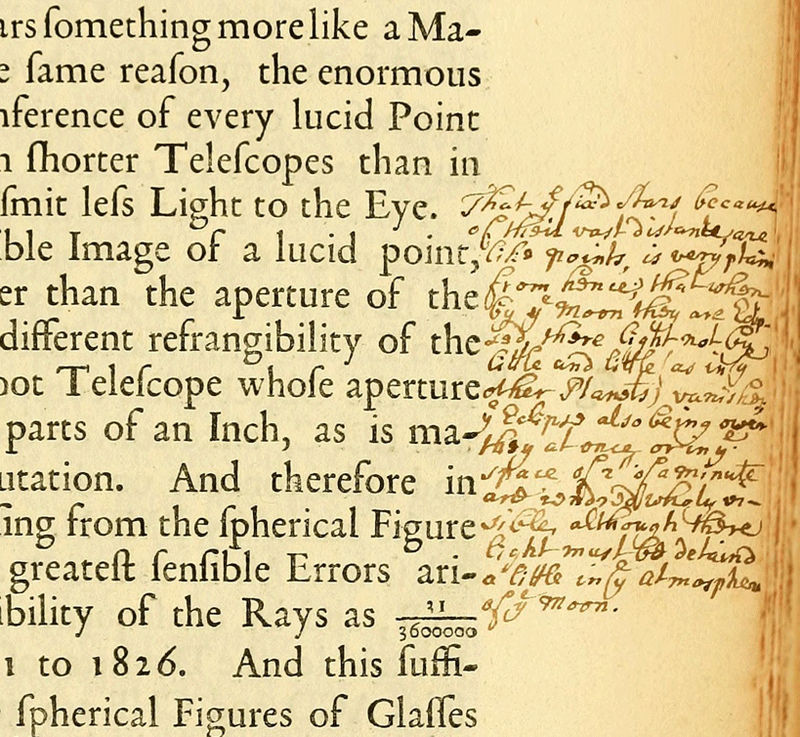 ars ſomething more like a Ma-
e ſame reaſon, the enormous
nference of every lucid Point
n ſhorter Teleſcopes than in
ſmit leſs Light to the Eye.
ible Image of a lucid point,
er than the aperture of the
different refrangibility of the
oot Teleſcope whoſe aperture
parts of an Inch, as is ma-
utation. And therefore in
ſing from the ſpherical Figure
greateſt ſenſible Errors ari-
ibility of the Rays as 31/3600000
1 to 1826. And this ſuffi-
ſpherical Figures of Glaſſes
That ye fixed Stars because
of their vast distance, are
like points, is very plain
from hence; that when
by ye Moon they are Eclip-
sed, there light not by
little and little (as in ye
other Planets) vanishes
ye Eclipse also being over
they at once, or in ye
space of 2" of a minute
are rendred wholy vi-
sible, although there
light must be detaind
a little in ye Atmosphere
of ye Moon.